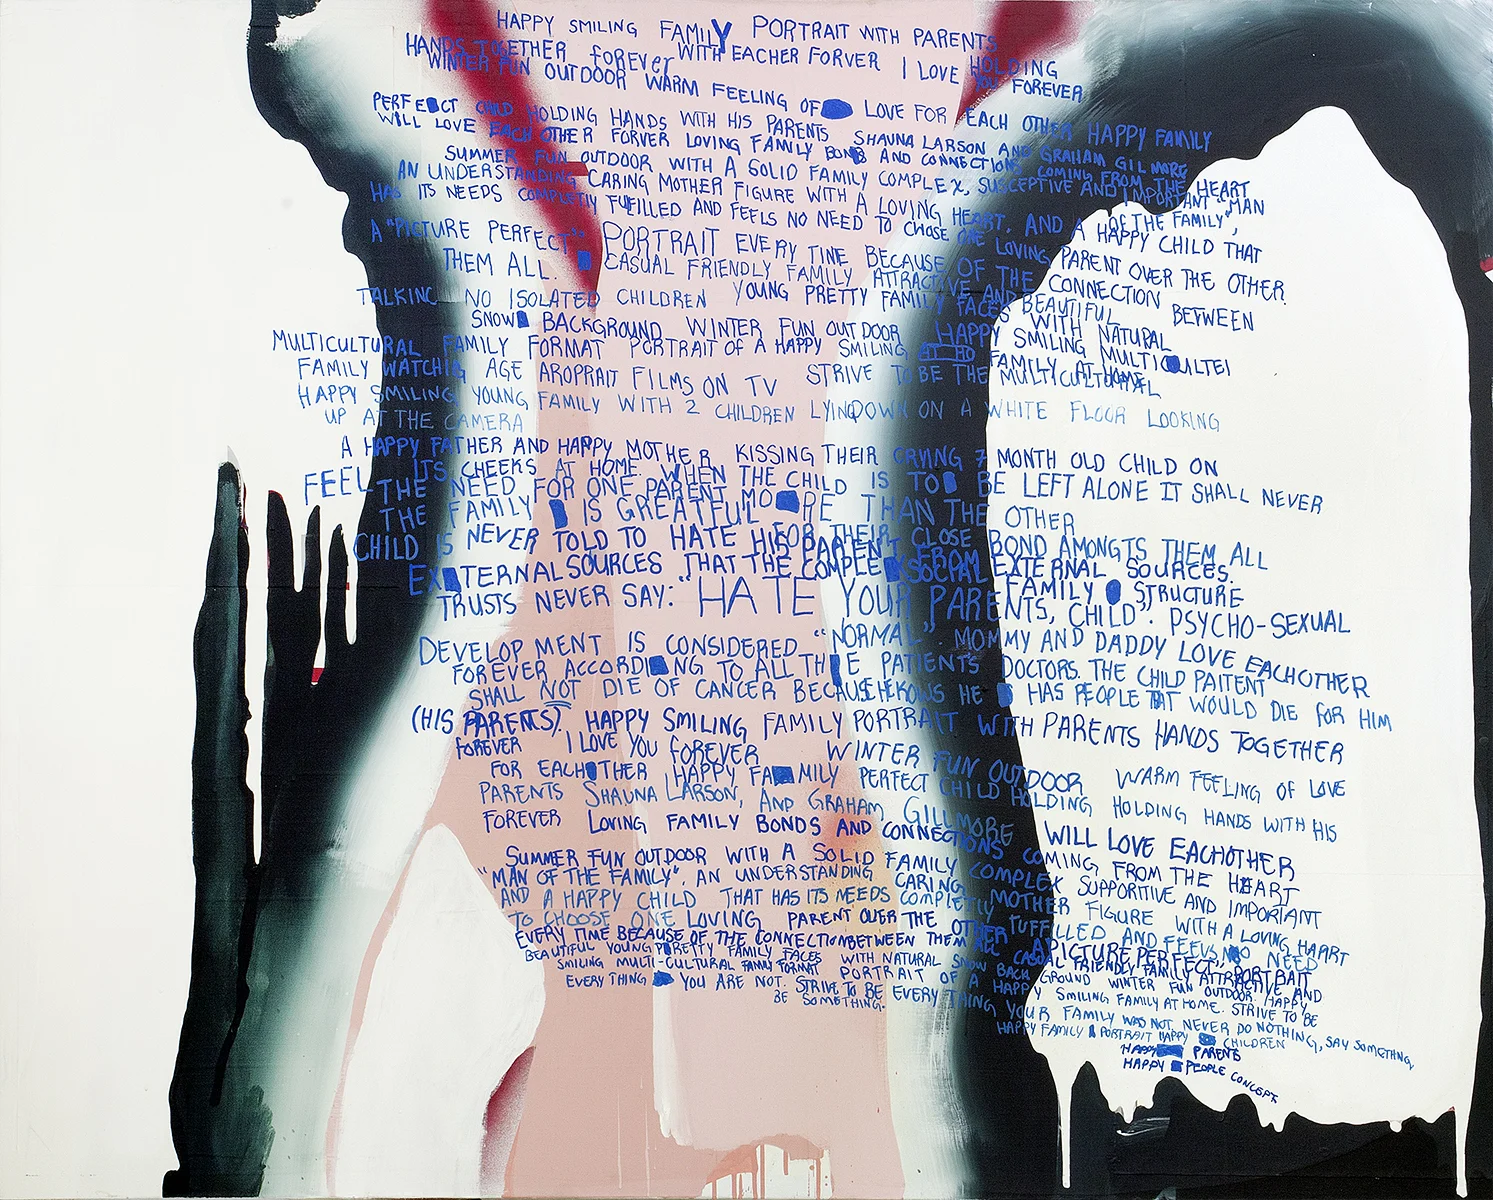 HAPPY SMILING FAMILY PORTRAIT WITH PARENTS
HANDS TOGETHER FOREVER WITH EACHER FORVER I LOVE HOLDING
WINTER FUN OUTDOOR WARM FEELING OF LOVE FOR YOU FOREVER
PERFECT CHILD HOLDING HANDS WITH HIS PARENTS EACH OTHER HAPPY FAMILY
WILL LOVE EACH OTHER FORVER LOVING FAMILY BOND AND CONNECTIONS SHAUNA LARSON AND GRAHAM GILLMORE
SUMMER FUN OUTDOOR WITH A SOLID FAMILY COMPLEX, SUSCEPTIVE AND IMPORTANT COMING FROM THE HEART
AN UNDERSTANDING CARING MOTHER FIGURE WITH A LOVING HEART, AND A "MAN OF THE FAMILY",
HAS ITS NEEDS COMPLETLY FULFILLED AND FEELS NO NEED TO CHOSE ONE LOVING A HAPPY CHILD THAT
A "PICTURE PERFECT" PORTRAIT EVERY TINE BECAUSE OF THE CONNECTION PARENT OVER THE OTHER.
THEM ALL. CASUAL FRIENDLY FAMILY ATTRACTIVE AND BEAUTIFUL BETWEEN
TALKING NO ISOLATED CHILDREN YOUNG PRETTY FAMILY FACES WITH NATURAL
SNOW BACKGROUND WINTER FUN OUTDOOR HAPPY SMILING MULTICULTEI
MULTICULTURAL FAMILY FORMAT PORTRAIT OF A HAPPY SMILING AT HO FAMILY AT HOME
FAMILY WATCHIG AGE AROPRAIT FILMS ON TV STRIVE TO BE THE MULTICULTURAL
HAPPY SMILING YOUNG FAMILY WITH 2 CHILDREN LYING DOWN ON A WHITE FLOOR LOOKING
UP AT THE CAMERA
A HAPPY FATHER AND HAPPY MOTHER KISSING THEIR CRYING 7 MONTH OLD CHILD ON
ITS CHEEKS AT HOME. WHEN THE CHILD IS TO BE LEFT ALONE IT SHALL NEVER
FEEL THE NEED FOR ONE PARENT MORE THAN THE OTHER
THE FAMILY IS GREATFUL FOR THEIR CLOSE BOND AMONGTS THEM ALL
CHILD IS NEVER TOLD TO HATE HIS PARENT FROM EXTERNAL SOURCES.
EXTERNAL SOURCES THAT THE COMPLEX SOCIAL FAMILY STRUCTURE
TRUSTS NEVER SAY: "HATE YOUR PARENTS, CHILD". PSYCHO-SEXUAL
DEVELOPMENT IS CONSIDERED "NORMAL". MOMMY AND DADDY LOVE EACHOTHER
FOREVER ACCORDING TO ALL THE PATIENTS DOCTORS. THE CHILD PAITENT
SHALL NOT DIE OF CANCER BECAUSE HE KOWS HE HAS PEOPLE THAT WOULD DIE FOR HIM
(HIS PARENTS). HAPPY SMILING FAMILY PORTRAIT WITH PARENTS HANDS TOGETHER
FOREVER I LOVE YOU FOREVER WINTER FUN OUTDOOR WARM FEELING OF LOVE
FOR EACHOTHER HAPPY FAMILY PERFECT CHILD HOLDING HOLDING HANDS WITH HIS
PARENTS SHAUNA LARSON, AND GRAHAM GILLMORE WILL LOVE EACHOTHER
FOREVER LOVING FAMILY BONDS AND CONNECTIONS COMING FROM THE HEART
SUMMER FUN OUTDOOR WITH A SOLID FAMILY COMPLEX SUPPORTIVE AND IMPORTANT
"MAN OF THE FAMILY". AN UNDERSTANDING CARING MOTHER FIGURE WITH A LOVING HEART
AND A HAPPY CHILD THAT HAS ITS NEEDS COMPLETLY FUFFILLED AND FEELS NO NEED
TO CHOOSE ONE LOVING PARENT OVER THE OTHER A PICTURE PERFECT PORTRAIT
EVERY TIME BECAUSE OF THE CONNECTION BETWEEN THEM ALL CASUAL FRIENDLY FAMILY ATTRACTIVE AND
BEAUTIFUL YOUNG PRETTY FAMILY FACES WITH NATURAL SNOW BACK GROUND WINTER FUN OUTDOOR. HAPPY
SMILING MULTI-CULTURAL FAMILY FORMAT PORTRAIT OF A HAPPY SMILING FAMILY AT HOME. STRIVE TO BE
EVERY THING YOU ARE NOT. STRIVE TO BE EVERY THING YOUR FAMILY WAS NOT. NEVER DO NOTHING, SAY SOMETHING,
BE SOMETHING. HAPPY FAMILY PORTRAIT HAPPY CHILDREN
HAPPY PARENTS
HAPPY PEOPLE CONCEPT